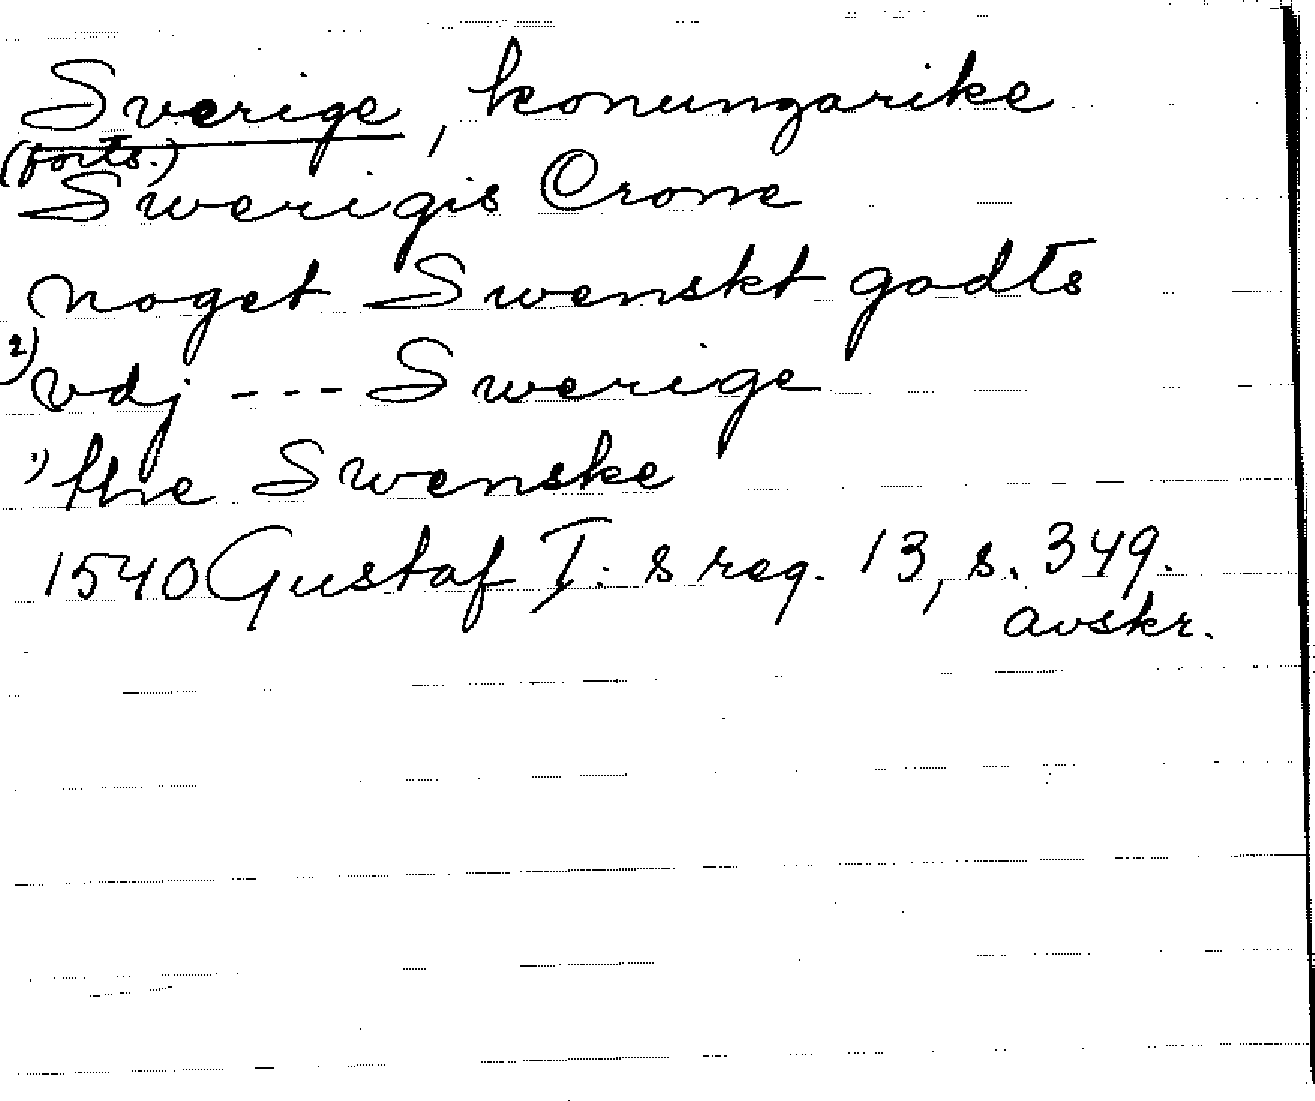 Sverige, konungarike
(forts.)
Swerigis Crone
noget Swenskt godts
2) vdj --- Swerige
1) the Swenske
1540 Gustaf I. s reg. 13, s. 349.
avskr.